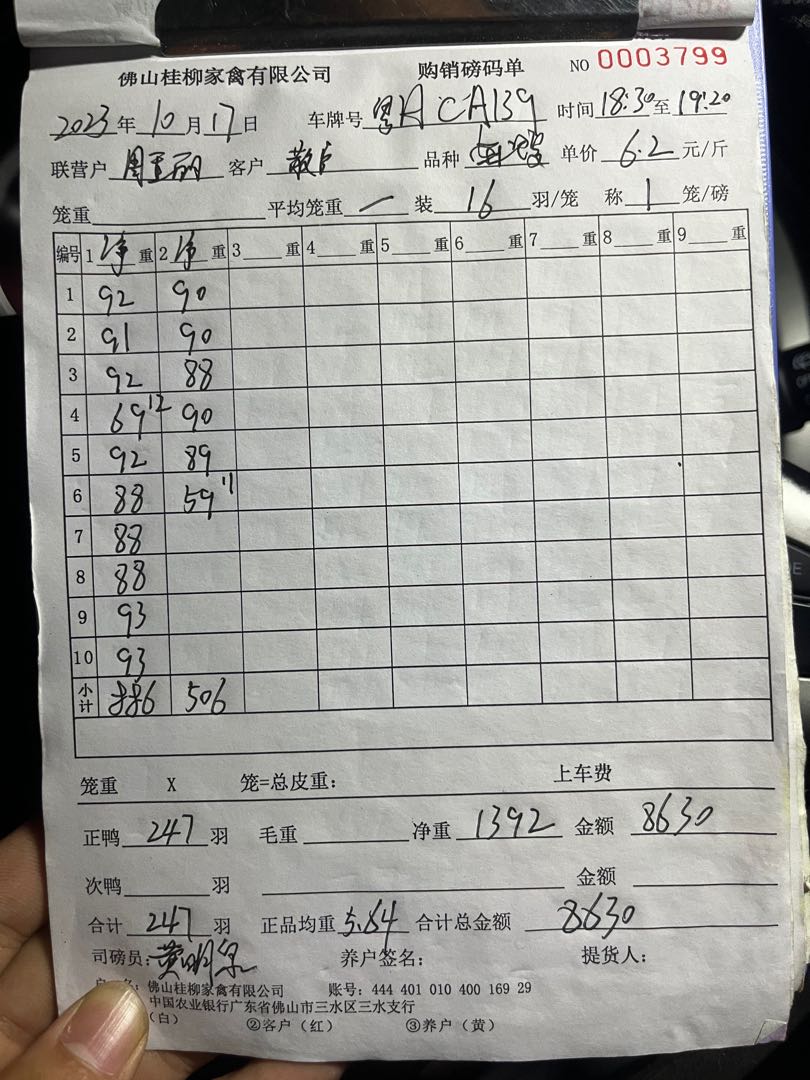 佛山桂柳家禽有限公司 购销磅码单 NO 0003799
2023年10月17日 车牌号 粤ACA139 时间18:30至19:20
联营户 客户 散户 品种 单价 6.2 元/斤
笼重 平均笼重 一 装 16 羽/笼 称 1 笼/磅
编号 1 净 重 2 净 重 3 重 4 重 5 重 6 重 7 重 8 重 9 重
1 92 90
2 91 90
3 92 88
4 69 12 90
5 92 89
6 88 59 11
7 88
8 88
9 93
10 93
小计 886 506
笼重 X 笼=总皮重: 上车费
正鸭 247 羽 毛重 净重 1392 金额 8630
次鸭 羽 金额
合计 247 羽 正品均重 5.64 合计总金额 8630
司磅员: 养户签名: 提货人:
佛山桂柳家禽有限公司 账号: 444 401 010 400 169 29
中国农业银行广东省佛山市三水区三水支行
(白) ②客户(红) ③养户(黄)